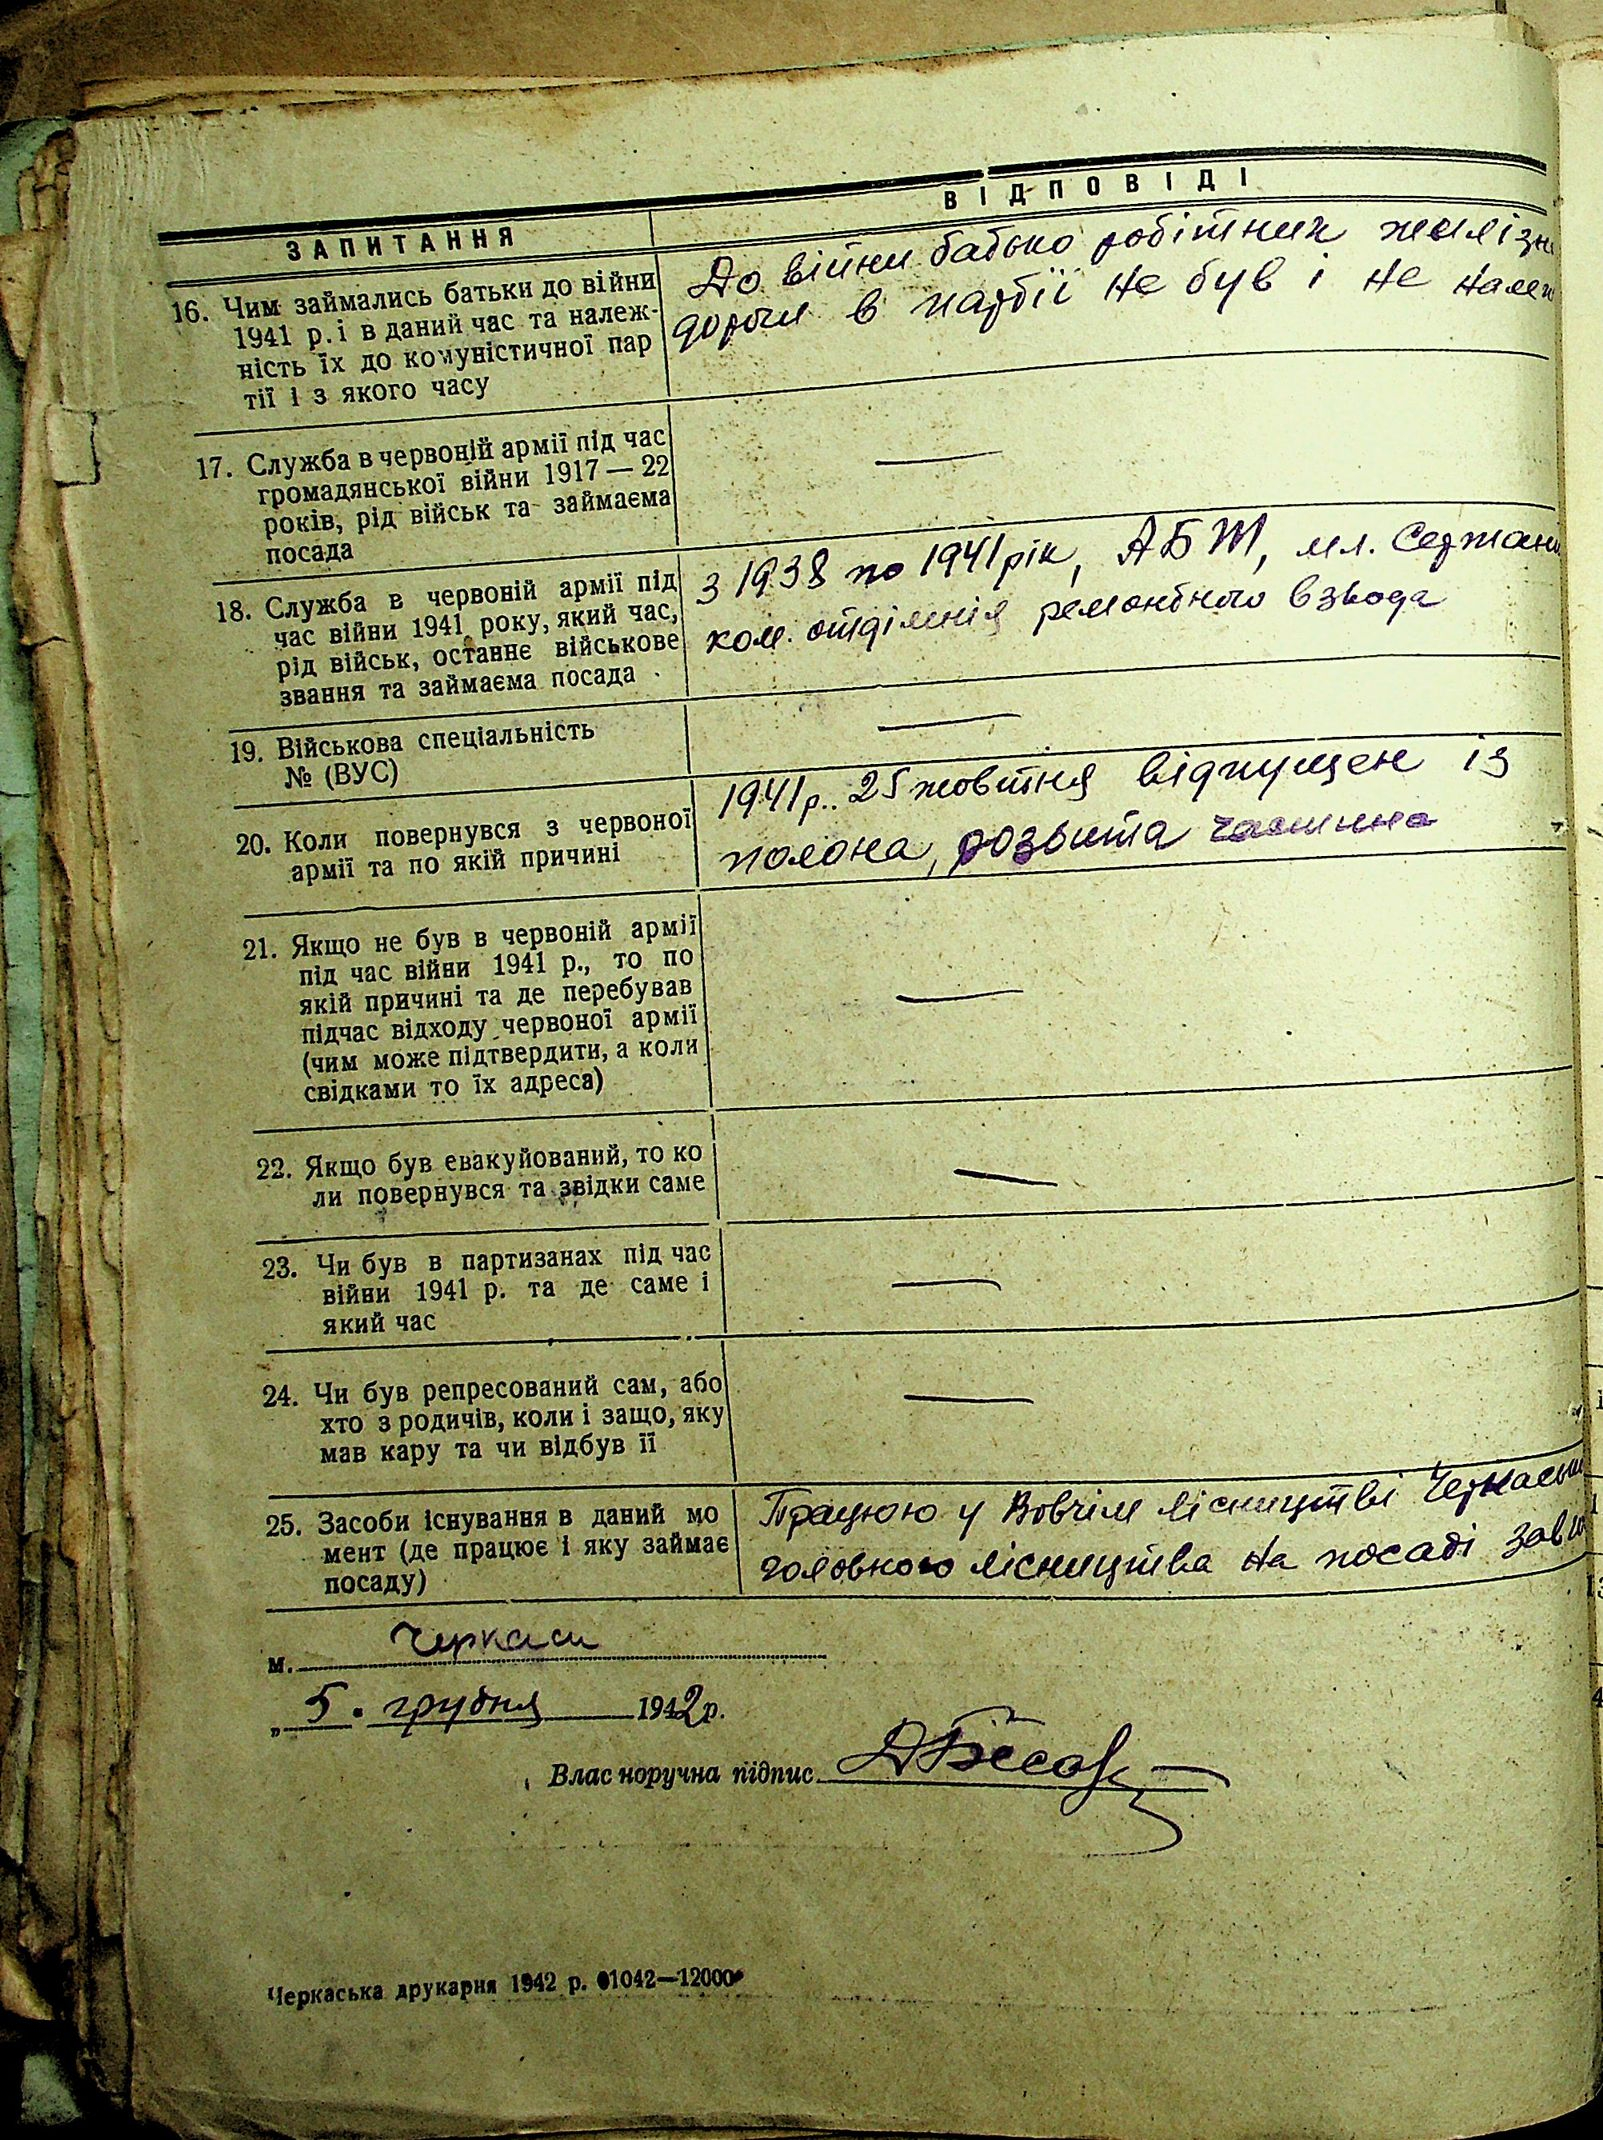 ЗАПИТАННЯ
ВІДПОВІДІ
16. Чим займались батьки до війни
1941 р. і в даний час та належ-
ність їх до комуністичної пар
тії і з якого часу
До війни батько робітник желізн
дороги в партії не був і не належ
17. Служба в червоній армії під час
громадянської війни 1917 — 22
років, рід військ та займаєма
посада
—
18. Служба в червоній армії під
час війни 1941 року, який час,
рід військ, останнє військове
звання та займаєма посада
з 1938 по 1941 рік, АБТ, мл. Сержант
ком. отділенія ремонтного взвода
19. Військова спеціальність
№ (ВУС)
—
20. Коли повернувся з червоної
армії та по якій причині
1941 р.. 25 жовтня відпущен із
полона, розбита частина
21. Якщо не був в червоній армії
під час війни 1941 р., то по
якій причині та де перебував
підчас відходу червоної армії
(чим може підтвердити, а коли
свідками то їх адреса)
—
22. Якщо був евакуйований, то ко
ли повернувся та звідки саме
—
23. Чи був в партизанах під час
війни 1941 р. та де саме і
який час
—
24. Чи був репресований сам, або
хто з родичів, коли і защо, яку
мав кару та чи відбув її
—
25. Засоби існування в даний мо
мент (де працює і яку займає
посаду)
Працюю у Вовчім лісництві Черкаськ
головного лісництва на посаді зав
м. Черкаси
„ 5 " грудня 1942 р.
Власноручна підпис
Черкаська друкарня 1942 р. 01042—12000